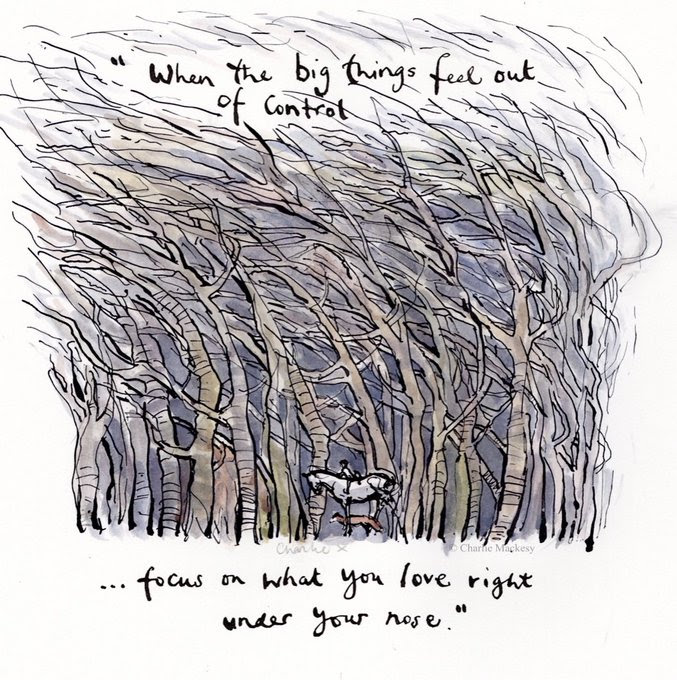 "When the big things feel out
of control
Charlie x
© Charlie Mackesy
... focus on what you love right
under your nose."